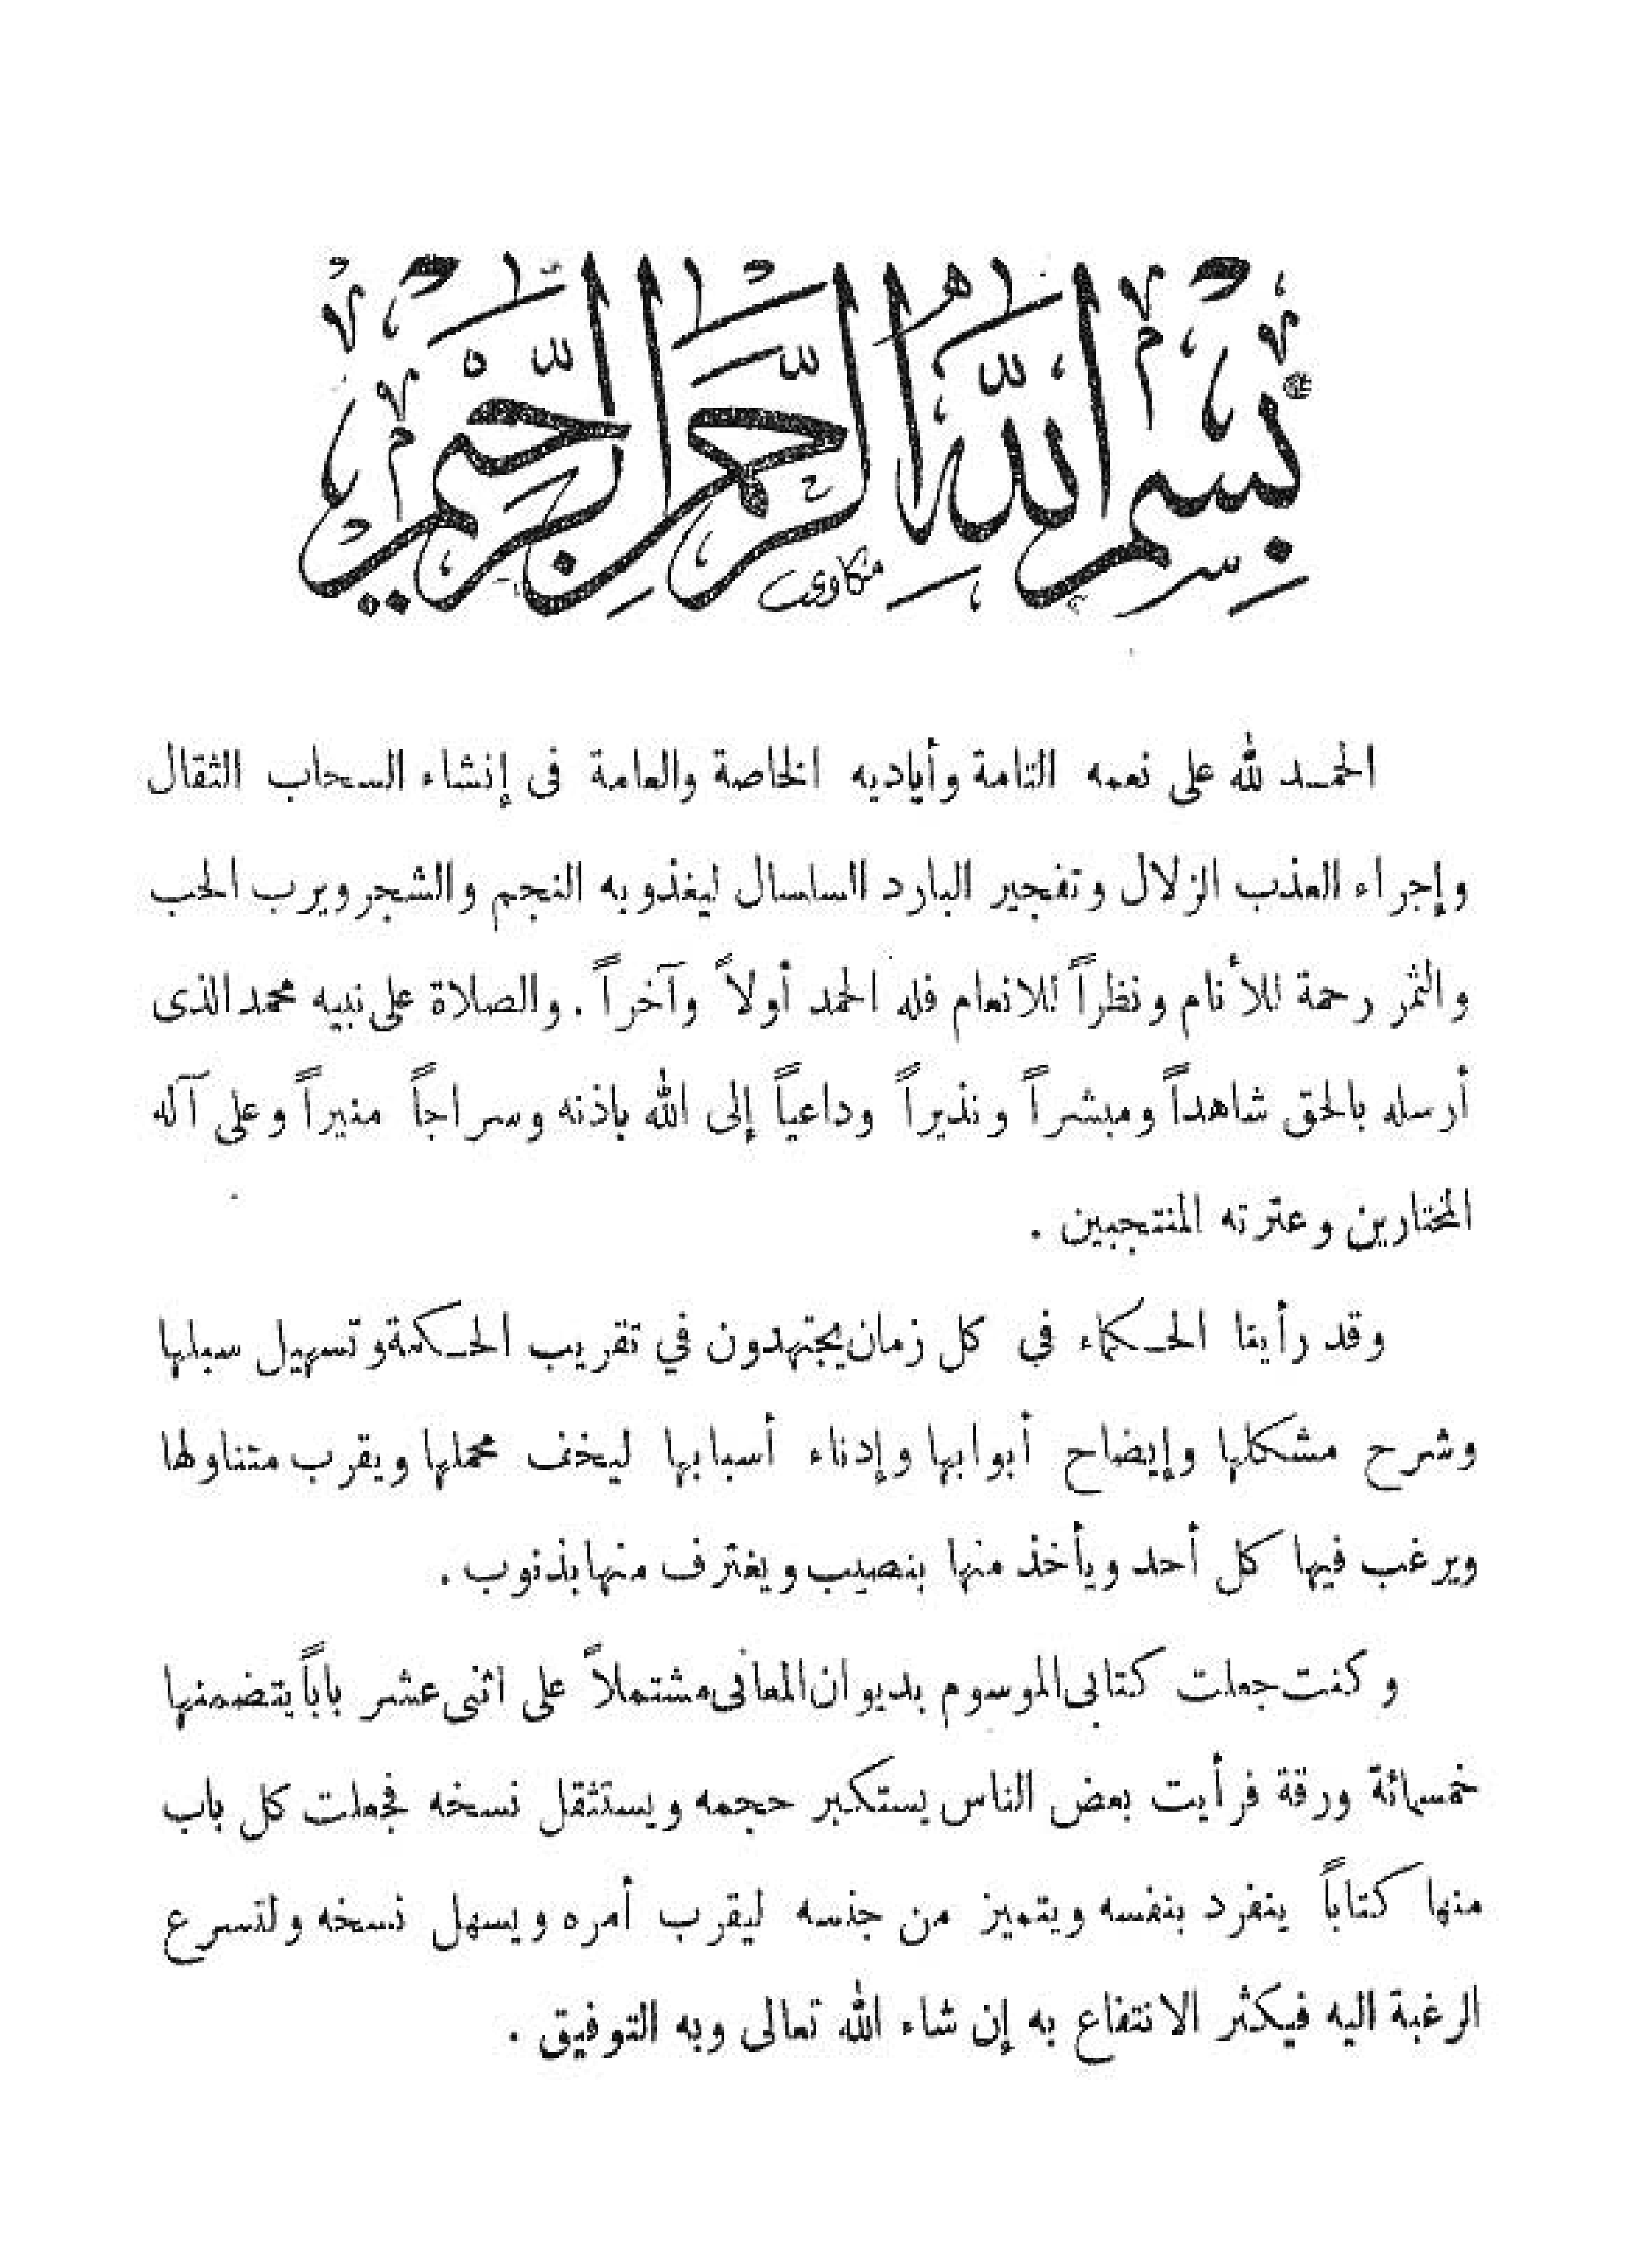 بِسْمِ اللَّهِ الرَّحْمَنِ الرَّحِيمِ
مكاوى
الحمد لله على نعمه التامة وأياديه الخاصة والعامة فى إنشاء السحاب الثقال
وإجراء العذب الزلال وتفجير البارد السلسال ليغذو به النجم والشجر ويرب الحب
والثمر رحمة للأنام ونظراً للانعام فله الحمد أولاً وآخراً . والصلاة على نبيه محمد الذى
أرسله بالحق شاهداً ومبشراً ونذيراً وداعياً إلى الله باذنه وسراجاً منيراً وعلى آله
المختارين وعترته المنتجبين .
وقد رأينا الحكماء فى كل زمان يجتهدون في تقريب الحكمة وتسهيل سبلها
وشرح مشكلها وإيضاح أبوابها وإدناء أسبابها ليخف محملها ويقرب متناولها
ويرغب فيها كل أحد ويأخذ منها بنصيب ويغترف منها بذنوب .
وكنت جعلت كتابى الموسوم بديوان المعانى مشتملاً على اثنى عشر باباً يتضمنها
خمسمائة ورقة فرأيت بعض الناس يستكبر حجمه ويستثقل نسخه فجعلت كل باب
منها كتاباً ينفرد بنفسه ويتميز من جنسه ليقرب أمره ويسهل نسخه ولتسرع
الرغبة اليه فيكثر الانتفاع به إن شاء الله تعالى وبه التوفيق .